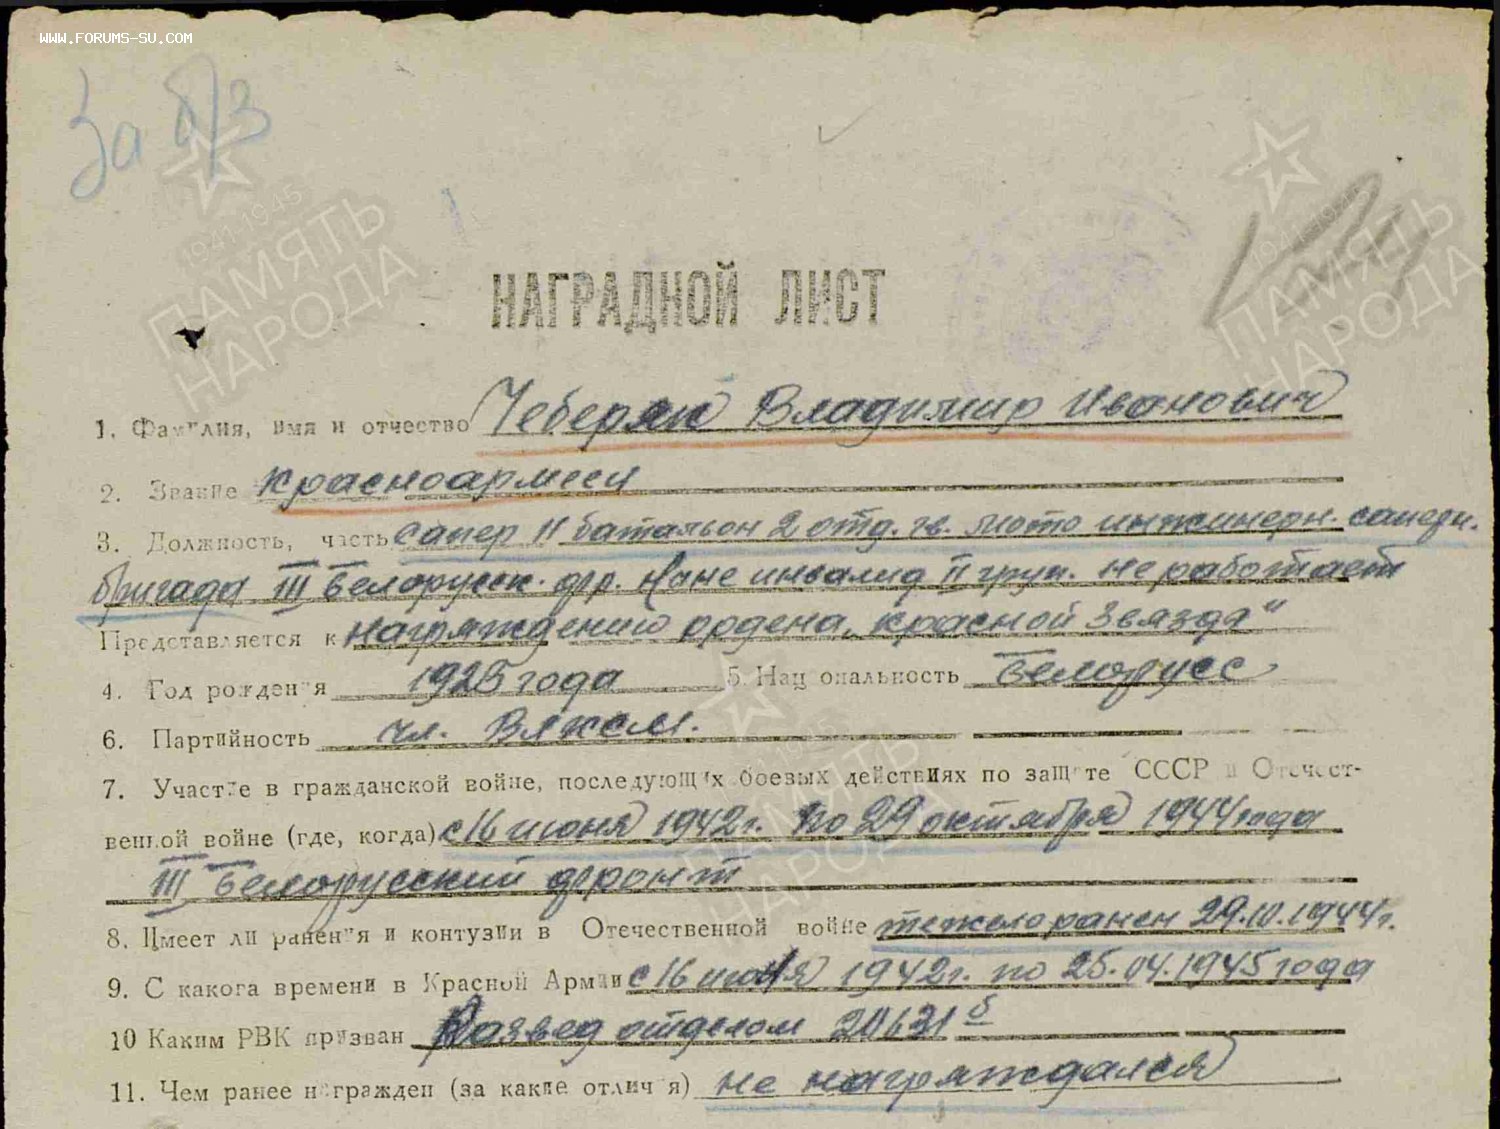 WWW.FORUMS-SU.COM
За б/З
НАГРАДНОЙ ЛИСТ
1. Фамилия, имя и отчество Чеберяк Владимир Иванович
2. Звание красноармеец
3. Должность, часть сапер 11 батальон 2 отд. гв. мото инжинерн. саперн.
бригада III Белорусск. фр. Ныне инвалид II груп. не работает
Представляется к награждению ордена „Красной Звязда"
4. Год рождения 1925 года 5. Национальность Белорусс
6. Партийность чл. ВЛКСМ.
7. Участие в гражданской войне, последующих боевых действиях по защите СССР и Отечест-
венной войне (где, когда) с 16 июня 1942 г. по 29 октября 1944 года
III Белорусский фронт
8. Имеет ли ранения и контузии в Отечественной войне тежело ранен 29.10.1944 г.
9. С какога времени в Красной Армии с 16 июня 1942 г. по 25.04.1945 года
10 Каким РВК призван Развед отделом 20631 б
11. Чем ранее награжден (за какие отличия) не награждался
1941-1945
ПАМЯТЬ
НАРОДА
1941-1945
ПАМЯТЬ
НАРОДА
ПАМЯТЬ
НАРОДА